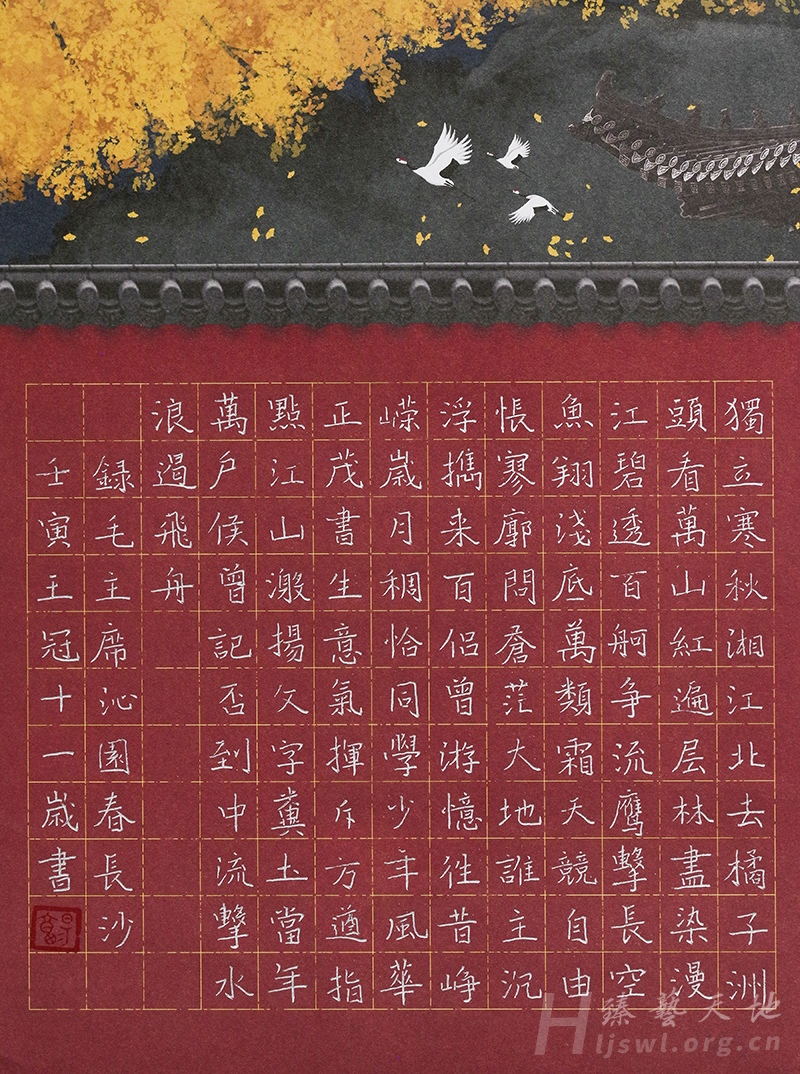 獨立寒秋湘江北去橘子洲
頭看萬山紅遍层林盡染漫
江碧透百舸争流鹰擊長空
魚翔淺底萬類霜天競自由
悵寥廓問蒼茫大地誰主沉
浮擕来百侣曾游憶往昔峥
嵘歲月稠恰同學少年風華
正茂書生意氣揮斥方遒指
點江山激揚文字糞土當年
萬户侯曾記否到中流擊水
浪遏飛舟
録毛主席沁園春長沙
壬寅王冠十一歲書
臻藝天地
Hljswl.org.cn